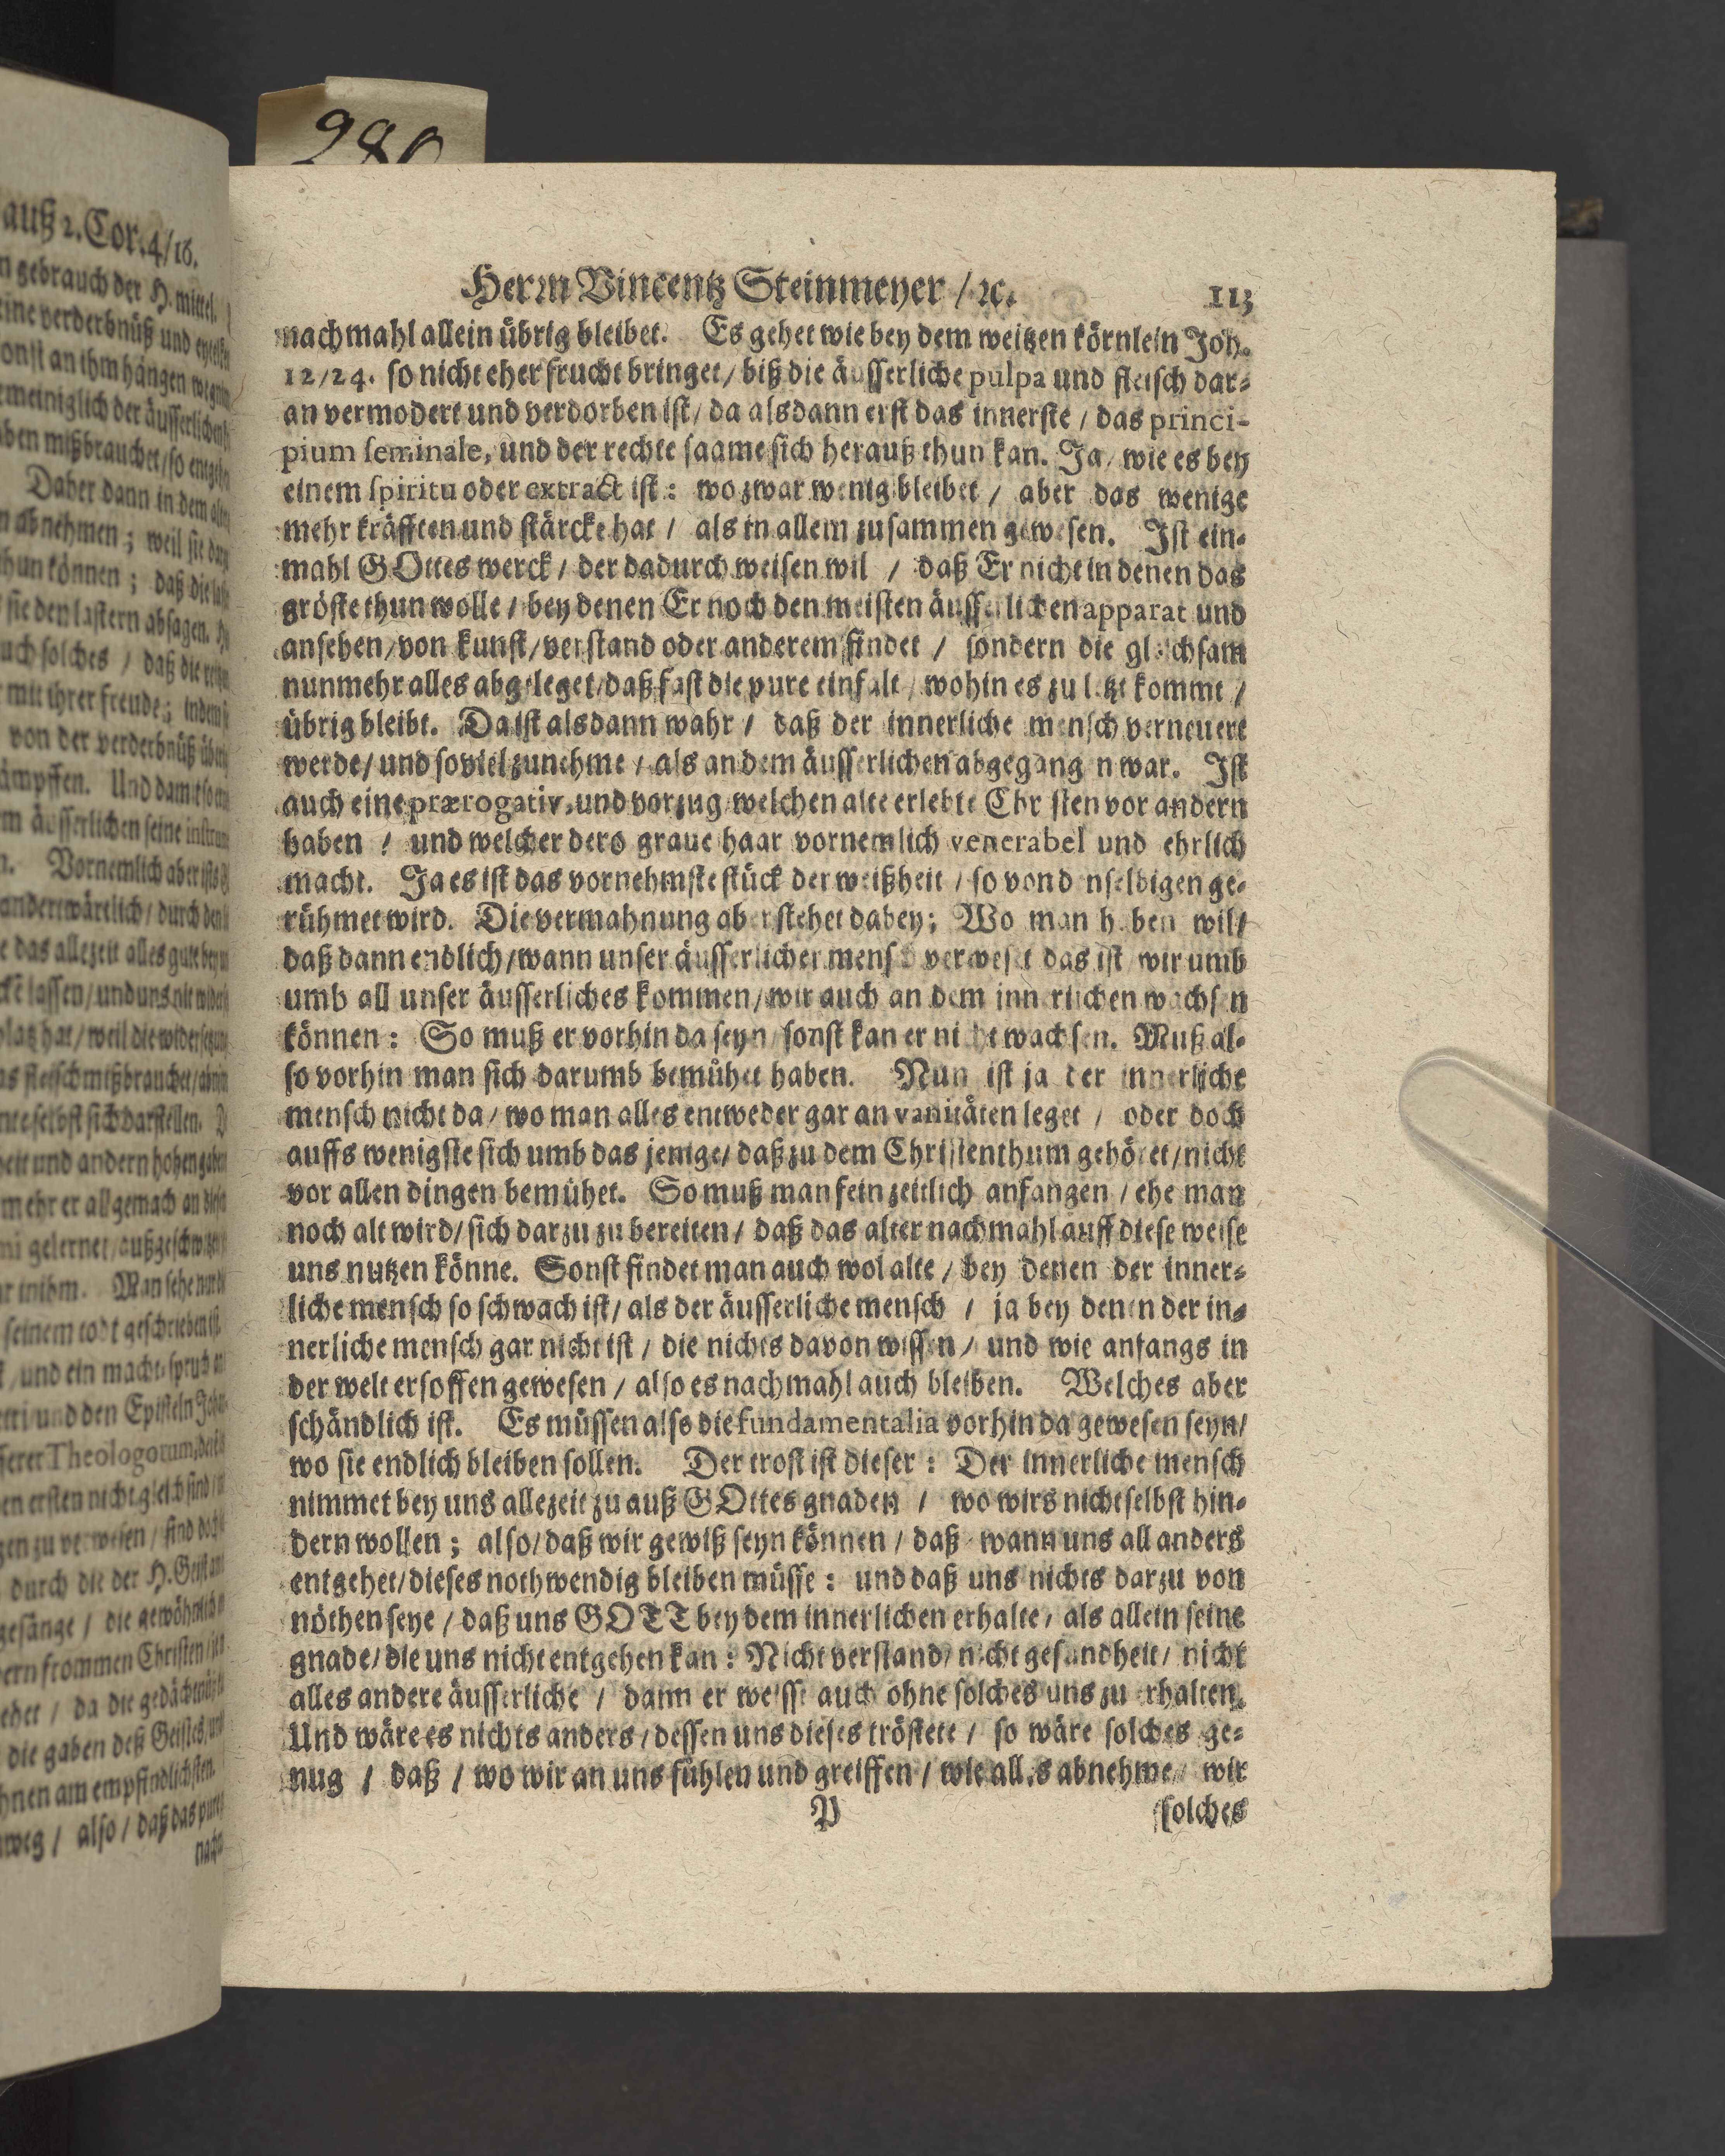 980
Herrn Vincentz Steinmeyer / ꝛc. 113
nachmahl allein übrig bleibet. Es gehet wie bey dem weitzen körnlein Joh.
12/24. so nicht eher frucht bringet / biß die äusserliche pulpa und fleisch dar-
an vermodert und verdorben ist / da alsdann erst das innerste / das princi-
pium seminale, und der rechte saame sich herauß thun kan. Ja / wie es bey
einem spiritu oder extract ist: wo zwar wenig bleibet / aber das wenige
mehr kräfften und stärcke hat / als in allem zusammen gewesen. Ist ein-
mahl GOttes werck / der dadurch weisen wil / daß Er nicht in denen das
gröste thun wolle / bey denen Er noch den meisten äusserlichen apparat und
ansehen / von kunst / verstand oder anderem findet / sondern die gleichsam
nunmehr alles abgeleget / daß fast die pure einfalt / wohin es zu letzt kommt /
übrig bleibt. Da ist alsdann wahr / daß der innerliche mensch verneuert
werde / und so viel zunehme / als an dem äusserlichen abgegangen war. Ist
auch eine prærogativ, und vorzug / welchen alte erlebte Christen vor andern
haben / und welcher dero graue haar vornemlich venerabel und ehrlich
macht. Ja es ist das vornehmste stück der weißheit / so von denselbigen ge-
rühmet wird. Die vermahnung aber stehet dabey; Wo man haben wil /
daß dann endlich / wann unser äusserlicher mensch verweset das ist / wir umb
umb all unser äusserliches kommen / wir auch an dem innerlichen wachsen
können: So muß er vorhin da seyn / sonst kan er nicht wachsen. Muß al-
so vorhin man sich darumb bemühet haben. Nun ist ja der innerliche
mensch nicht da / wo man alles entweder gar an vanitäten leget / oder doch
auffs wenigste sich umb das jenige / daß zu dem Christenthum gehöret / nicht
vor allen dingen bemühet. So muß man fein zeitlich anfangen / ehe man
noch alt wird / sich darzu zu bereiten / daß das alter nachmahl auff diese weise
uns nutzen könne. Sonst findet man auch wol alte / bey denen der inner-
liche mensch so schwach ist / als der äusserliche mensch / ja bey denen der in-
nerliche mensch gar nicht ist / die nichts davon wissen / und wie anfangs in
der welt ersoffen gewesen / also es nachmahl auch bleiben. Welches aber
schändlich ist. Es müssen also die fundamentalia vorhin da gewesen seyn /
wo sie endlich bleiben sollen. Der trost ist dieser: Der innerliche mensch
nimmet bey uns allezeit zu auß GOttes gnaden / wo wirs nicht selbst hin-
dern wollen; also / daß wir gewiß seyn können / daß wann uns all anders
entgehet / dieses nothwendig bleiben müsse: und daß uns nichts darzu von
nöthen seye / daß uns GOTT bey dem innerlichen erhalte / als allein seine
gnade / die uns nicht entgehen kan: Nicht verstand / nicht gesundheit / nicht
alles andere äusserliche / dann er weisst auch ohne solches uns zu erhalten.
Und wäre es nichts anders / dessen uns dieses tröstete / so wäre solches ge-
nug / daß / wo wir an uns fühlen und greiffen / wie alles abnehme / wir
P solches